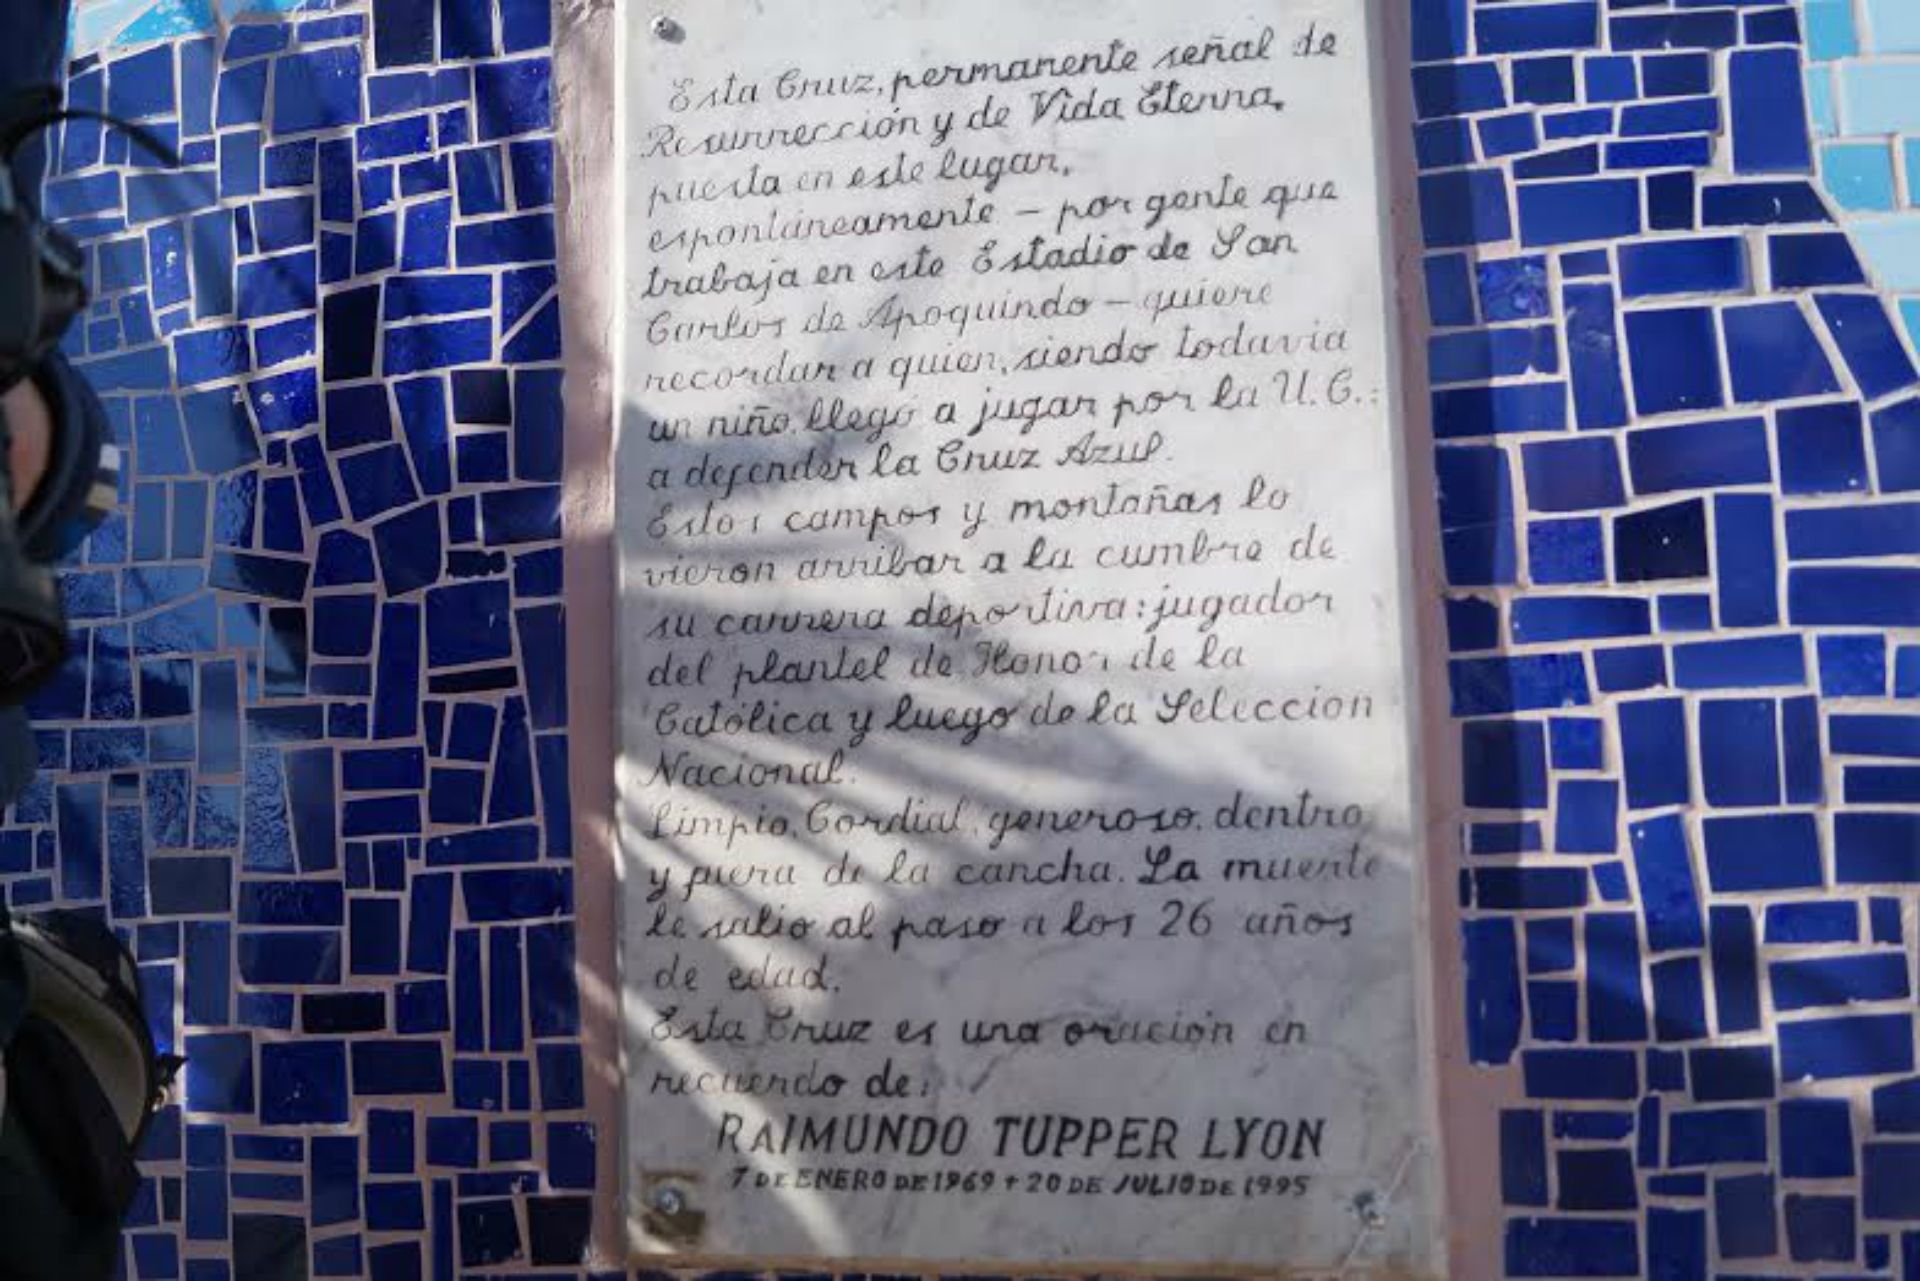 Esta Cruz, permanente señal de
Resurrección y de Vida Eterna,
puesta en este lugar,
espontáneamente – por gente que
trabaja en este Estadio de San
Carlos de Apoquindo – quiere
recordar a quien, siendo todavia
un niño, llegó a jugar por la U.C.:
a defender la Cruz Azul.
Estos campos y montañas lo
vieron arribar a la cumbre de
su carrera deportiva: jugador
del plantel de Honor de la
Católica y luego de la Seleccion
Nacional.
Limpio, Cordial, generoso, dentro
y fuera de la cancha. La muerte
le salio al paso a los 26 años
de edad.
Esta Cruz es una oración en
recuerdo de:
RAIMUNDO TUPPER LYON
7 DE ENERO DE 1969 + 20 DE JULIO DE 1995